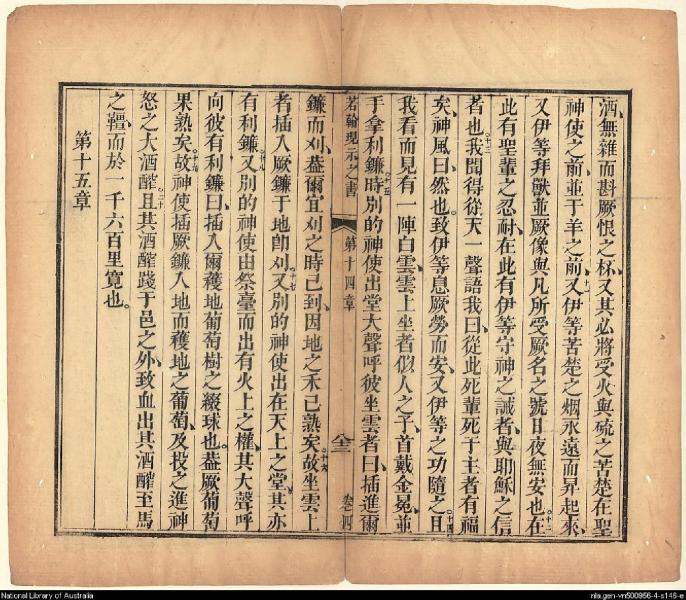 酒、無雜而斟厥恨之杯、又其必將受火與硫之苦楚在聖
神使之前、並于羊之前、十一又伊等苦楚之烟永遠而昇起來、
又伊等拜獸並厥像與凡所受厥名之號日夜無安也。十二在
此有聖輩之忍耐、在此有伊等守神之誡者、與耶穌之信
者也。十三我聞得從天一聲語我曰、從此死輩死于主者有福
矣、神風曰、然也。致伊等息厥勞而安、又伊等之功隨之。十四且
我看而見有一陣白雲、雲上坐者似人之子、首戴金冕、並
于拿利鐮。十五時別的神使出堂大聲呼彼坐雲者曰、插進爾
若翰現示之書 第十四章 卷四
鐮而刈、葢爾宜刈之時已到、因地之禾已熟矣。十六故坐雲上
者插入厥鐮于地即刈。十七又別的神使出在天上之堂、其亦
有利鐮。十八又別的神使由祭臺而出有火上之權、其大聲呼
向彼有利鐮曰、插入爾鐮穫地葡萄樹之綴球也。葢厥葡萄
果熟矣。十九故神使插厥鐮入地而穫地之葡萄、及投之進神
怒之大酒醡。二十且其酒醡踐于邑之外、致血出其酒醡至馬
之韁、而於一千六百里寬也。
第十五章
National Library of Australia
nla.gen-vn500956-4-s146-e